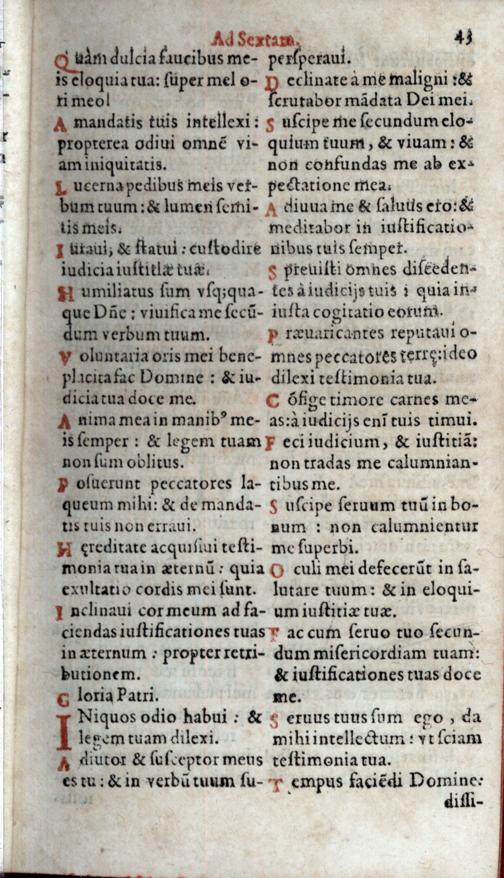 Ad Sextam. 43
Quàm dulcia faucibus me-
is eloquia tua: super mel o-
ri meo!
A mandatis tuis intellexi:
propterea odiui omnē vi-
am iniquitatis.
Lucerna pedibus meis ver-
bum tuum: & lumen semi-
tis meis.
Iuraui, & statui: custodire
iudicia iustitiæ tuæ.
Humiliatus sum vsq; qua-
que Dñe: viuifica me secū-
dum verbum tuum.
Voluntaria oris mei bene-
placita fac Domine: & iu-
dicia tua doce me.
Anima mea in manibꝰ me-
is semper: & legem tuam
non sum oblitus.
Posuerunt peccatores la-
queum mihi: & de manda-
tis tuis non erraui.
Hęreditate acquisiui testi-
monia tua in æternū: quia
exultatio cordis mei sunt.
Inclinaui cor meum ad fa-
ciendas iustificationes tuas
in æternum: propter retri-
butionem.
Gloria Patri.
INiquos odio habui: &
legem tuam dilexi.
Adiutor & susceptor meus
es tu: & in verbū tuum su-
persperaui.
Declinate à me maligni: &
scrutabor mādata Dei mei.
Suscipe me secundum elo-
quium tuum, & viuam: &
non confundas me ab ex-
pectatione mea.
Adiuua me & saluus ero: &
meditabor in iustificatio-
nibus tuis semper.
Spreuisti omnes disceden-
tes à iudicijs tuis: quia in-
iusta cogitatio eorum.
Præuaricantes reputaui o-
mnes peccatores terrę: ideo
dilexi testimonia tua.
Cōfige timore carnes me-
as: à iudicijs enī tuis timui.
Feci iudicium, & iustitiā:
non tradas me calumnian-
tibus me.
Suscipe seruum tuū in bo-
num: non calumnientur
me superbi.
Oculi mei defecerūt in sa-
lutare tuum: & in eloqui-
um iustitiæ tuæ.
Fac cum seruo tuo secun-
dum misericordiam tuam:
& iustificationes tuas doce
me.
Seruus tuus sum ego, da
mihi intellectum: vt sciam
testimonia tua.
Tempus faciēdi Domine:
dissi-